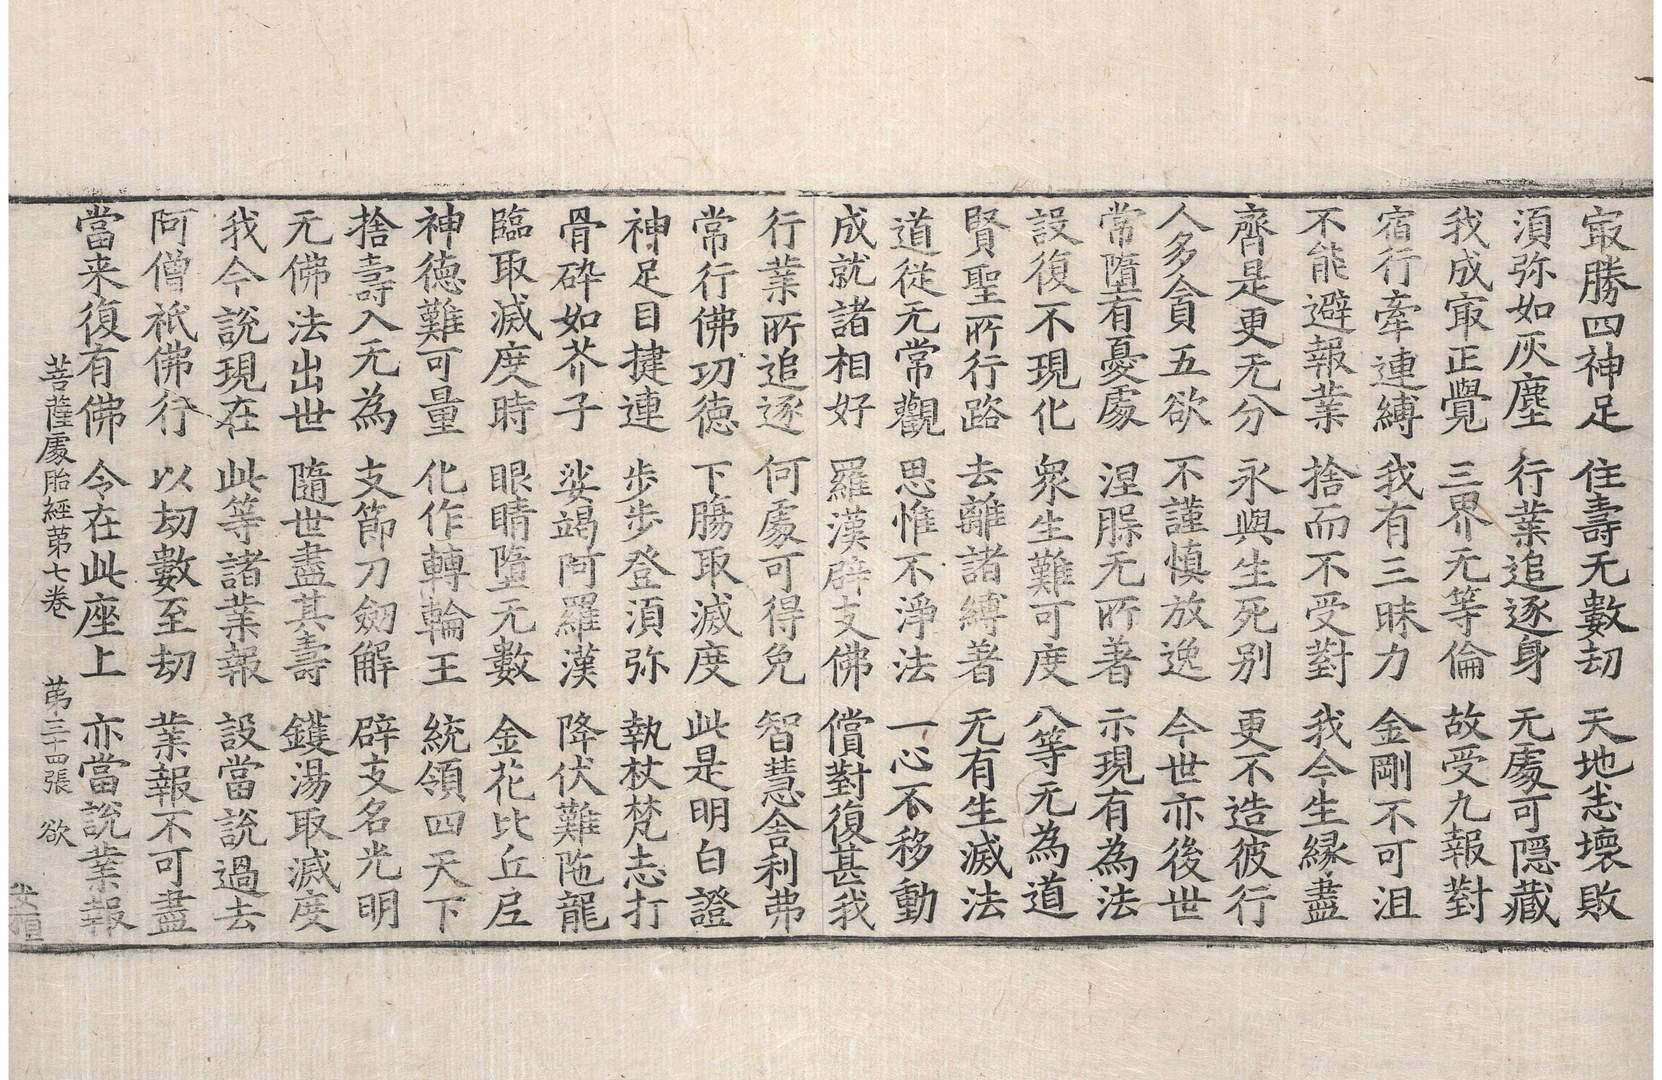 冣勝四神足 住壽无數劫 天地悉壞敗
須弥如灰塵 行業追逐身 无處可隱藏
我成冣正覺 三界无等倫 故受九報對
宿行牽連縛 我有三昧力 金剛不可沮
不能避報業 捨而不受對 我今生緣盡
齊是更无分 永與生死别 更不造彼行
人多貪五欲 不謹慎放逸 今世亦後世
常墮有憂處 涅槃无所著 示現有為法
設復不現化 衆生難可度 八等无為道
賢聖所行路 去離諸縛著 无有生滅法
道從无常觀 思惟不淨法 一心不移動
成就諸相好 羅漢辟支佛 償對復甚我
行業所追逐 何處可得免 智慧舍利弗
常行佛功德 下膓取滅度 此是明白證
神足目揵連 步步登須弥 執杖梵志打
骨碎如芥子 娑竭阿羅漢 降伏難陁龍
臨取滅度時 眼睛墮无數 金花比丘尼
神德難可量 化作轉輪王 統領四天下
捨壽入无為 支節刀劒解 辟支名光明
无佛法出世 隨世盡其壽 鑊湯取滅度
我今說現在 此等諸業報 設當說過去
阿僧祇佛行 以劫數至劫 業報不可盡
當来復有佛 令在此座上 亦當說業報
菩薩處胎經第七卷 第三十四張 欲